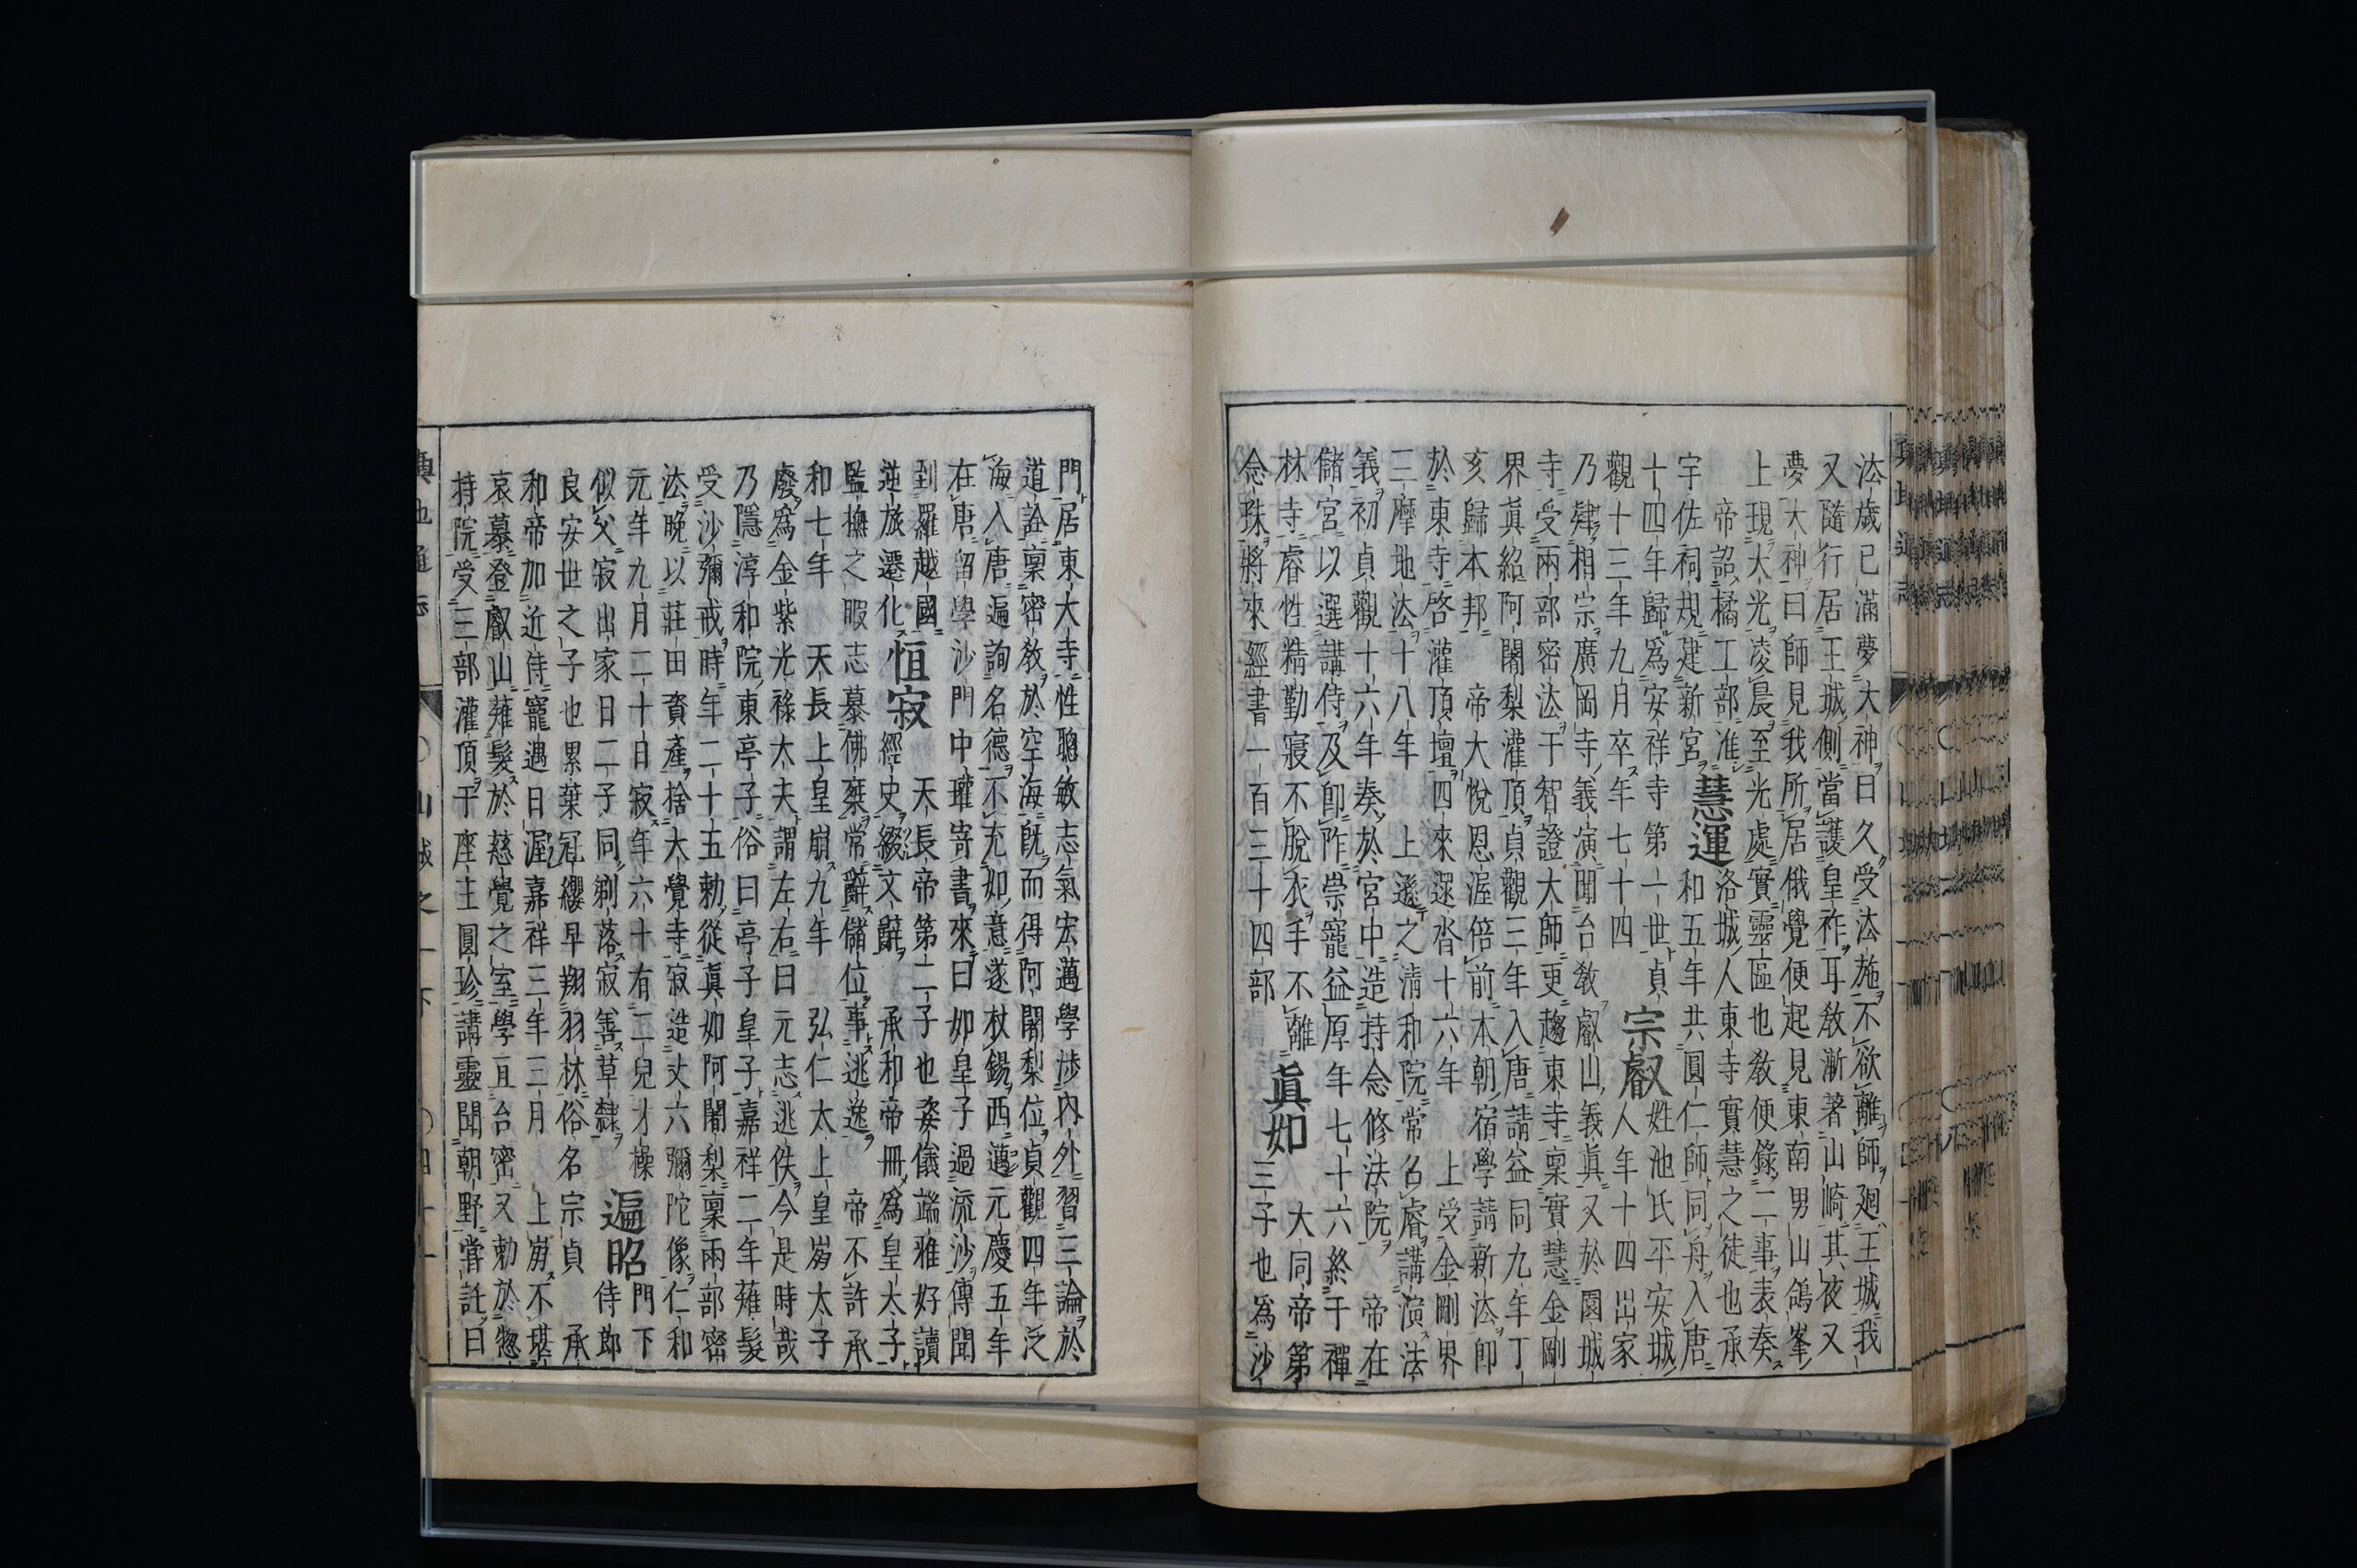 法歲已滿夢大神曰久受法施不欲離師廻王城我
又隨行居王城側當護皇祚耳敎漸著山崎其夜又
夢大神曰師見我所居俄覺便起見東南男山鴿峯
上現大光凌晨至光處實靈區也敎便錄二事表奏
帝詔橘工部准
宇佐祠規建新宮慧運洛城人東寺實慧之徒也承
和五年共圓仁師同舟入唐
十四年歸爲安祥寺第一世貞
觀十三年九月卒年七十四宗叡姓池氏平安城
人年十四出家
乃肄相宗廣岡寺義演聞台敎叡山義眞又於園城
寺受兩部密法干智證大師更趨東寺稟實慧金剛
界眞紹阿闍梨灌頂貞觀三年入唐請益同九年丁
亥歸本邦 帝大悅恩渥倍前本朝宿學請新法卽
於東寺啓灌頂壇四來遝沓十六年 上受金剛界
三摩地法十八年 上遜之淸和院常召睿講演法
義初貞觀十六年奏於宮中造持念修法院 帝在
儲宮以選講侍及卽阼崇寵益厚年七十六終于禪
林寺睿性精勤寢不脫衣手不離
念珠將來經書一百三十四部眞如大同帝第
三子也爲沙
門居東大寺性聰敏志氣宏邁學涉內外習三論於
道詮稟密敎於空海旣而得阿闍梨位貞觀四年泛
海入唐遍詢名德不充如意遂杖錫西邁元慶五年
在唐留學沙門中瓘寄書來曰如皇子過流沙傳聞
到羅越國
逆旅遷化恒寂天長帝第二子也姿儀端雅好讀
經史綴文辭 承和帝冊爲皇太子
監撫之暇志慕佛桒常辭儲位事逃逸 帝不許承
和七年 天長上皇崩九年 弘仁太上皇崩太子
廢爲金紫光祿太夫謂左右曰元志逃佚今是時哉
乃隱淳和院東亭子俗曰亭子皇子嘉祥二年薙髮
受沙彌戒時年二十五勅從眞如阿闍梨稟兩部密
法晚以莊田資產捨大覺寺寂造丈六彌陀像仁和
元年九月二十日寂年六十有二兒才操
似父寂出家日二子同剃落寂善草隸遍昭門下
侍郞
良安世之子也累葉冠纓早翔羽林俗名宗貞 承
和帝加近侍寵遇日渥嘉祥三年三月 上崩不堪
哀慕登叡山薙髮於慈覺之室學亘台密又勅於惣
持院受三部灌頂干座主圓珍講靈聞朝野嘗託曰
山城之一下